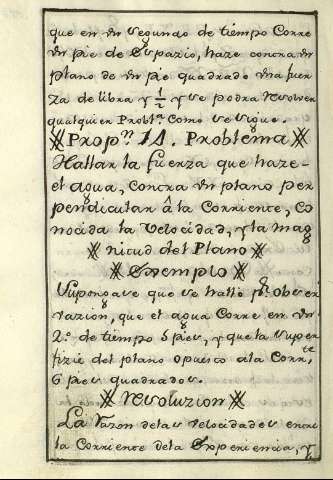 que en un segundo de tiempo Corre
un pie de Espazio, haze contra un
plano de un pie quadrado una fuer
za de libra y 1/2 y se podra resolver
qualquier Probl.ᵃ como se sigue.
Prop.ⁿ 14. Problema
Hallar la fuerza que haze
el agua, contra un plano per
pendicular â la Corriente, co
nocida la Velocidad, y la mag
nitud del Plano
Exemplo
Supongase que se halle p.ʳ obser
vazion, que el agua Corre en un
2.º de tiempo 5 pies, y que la super
fizie del plano opuesto a la Corr.ᵗᵉ
6 pies quadrados.
Resoluzion
La razon de las velocidades entre
la Corriente de la Experiencia, y